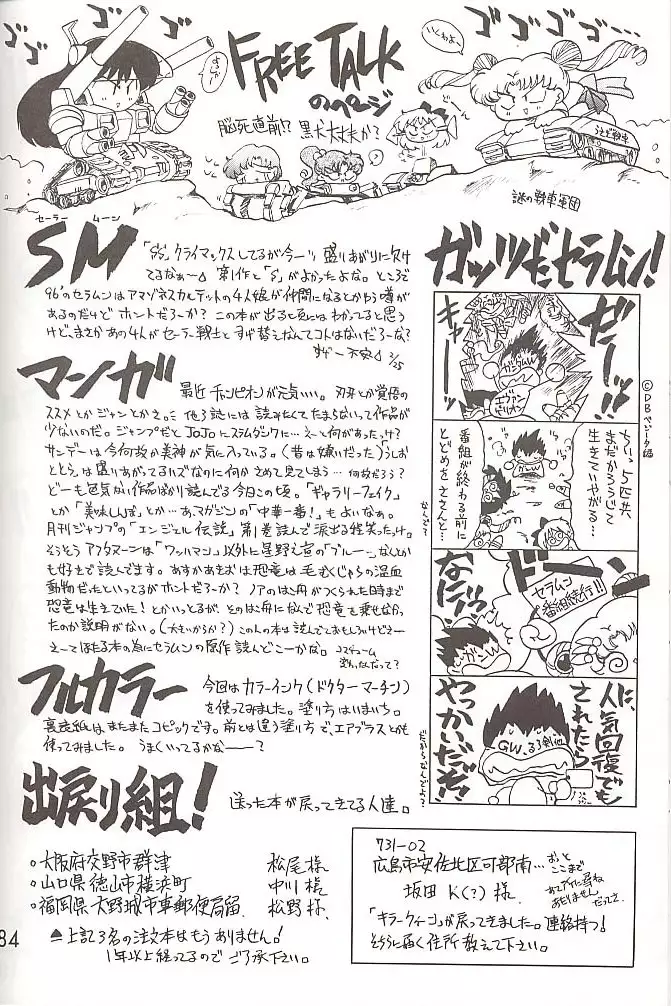 ゴゴゴ
FREE TALK
のページ
脳死直前!?黒犬大丈夫か?
いくわよー
ゴゴゴ
謎の戦車軍団
セーラー ムーン
SM
「SS」クライマックスしてるが今一ツ盛りあがりに欠け
てるなぁ〜 第1作と「S」がよかったよな。ところで
96'のセラムンはアマゾネスカルテットの4人娘が仲間になるとかゆう噂が
あるのだけどホントだろーか?この本が出る頃にはわかってると思う
けど、まさかあの4人がセーラー戦士とすげ替えなんてコトはないだろーな?
すげー不安 2/25
マンガ
最近チャンピオンが元気いい。刃牙とか覚悟の
ススメとかジャンとかさ。他3誌には読みたくてたまらないって作品が
少ないのだ。ジャンプだとJoJoにスラムダンクに…えーて何があったっけ?
サンデーは今何故か美神が気に入っている。(昔は嫌いだった)うしお
ととらは盛りあがってるハズなのに何かさめて見てしまう…何故だろう?
どーも色気ない作品ばかり読んでる今日この頃。「ギャラリーフェイク」
とか「美味しんぼ」とか…あ、マガジンの「中華一番!」もよいなぁ。
月刊ジャンプの「エンジェル伝説」第1巻読んで涙出る程笑ったっけ。
そうそうアフタヌーンは「ワッハマン」以外に星野之宣の「ブルー」なんとか
も好きで読んでます。あすかあきおは恐竜は毛むくじゃらの温血
動物だったといってるがホントだろーか?ノアのはこ舟がつくられた時まで
恐竜は生きていた!とかいっとるが、そのはこ舟になんで恐竜を乗せなかっ
たのか説明がない。(大きいからか?)この人の本は読んでておもしろいけどさー
えーてほたる本の為にセラムンの原作読んどこーかな。
フルカラー
今回はカラーインク(ドクターマーチン)
を使ってみました。塗り方はいまいち。
裏表紙はまたまたコピックです。前とは違う塗り方で、エアブラスとかも
使ってみました。うまくいってるかな———?
出戻り組!
送った本が戻ってきてる人達。
○大阪府交野市群津 松尾様
○山口県徳山市横浜町 中川様
○福岡県大野城市車郵便局留 松野様
▲上記3名の注文本はもうありません!
1年以上経ってるのでご了承下さい。
84
ガッツだセラムン!
©DBベジータ編
ゼーッ!!
キャー
ガンダムW
エヴァンゲリオン
ちいっ 5匹共
まだかろうじて
生きていやがる…
番組が終わる前に
とどめをささんと…
なんで?
ドーン
セラムン
番組続行!!
なにィッ!
人気回復でも
されたら
やっかいだぞ!
GW.るろ剣他
だからなんでよ?
731-02
広島市安佐北区可部南…おっと
ここまで
坂田K(?)様
「キラークィーン」が戻ってきました。連絡待つ!
そちらに届く住所教えて下さい。